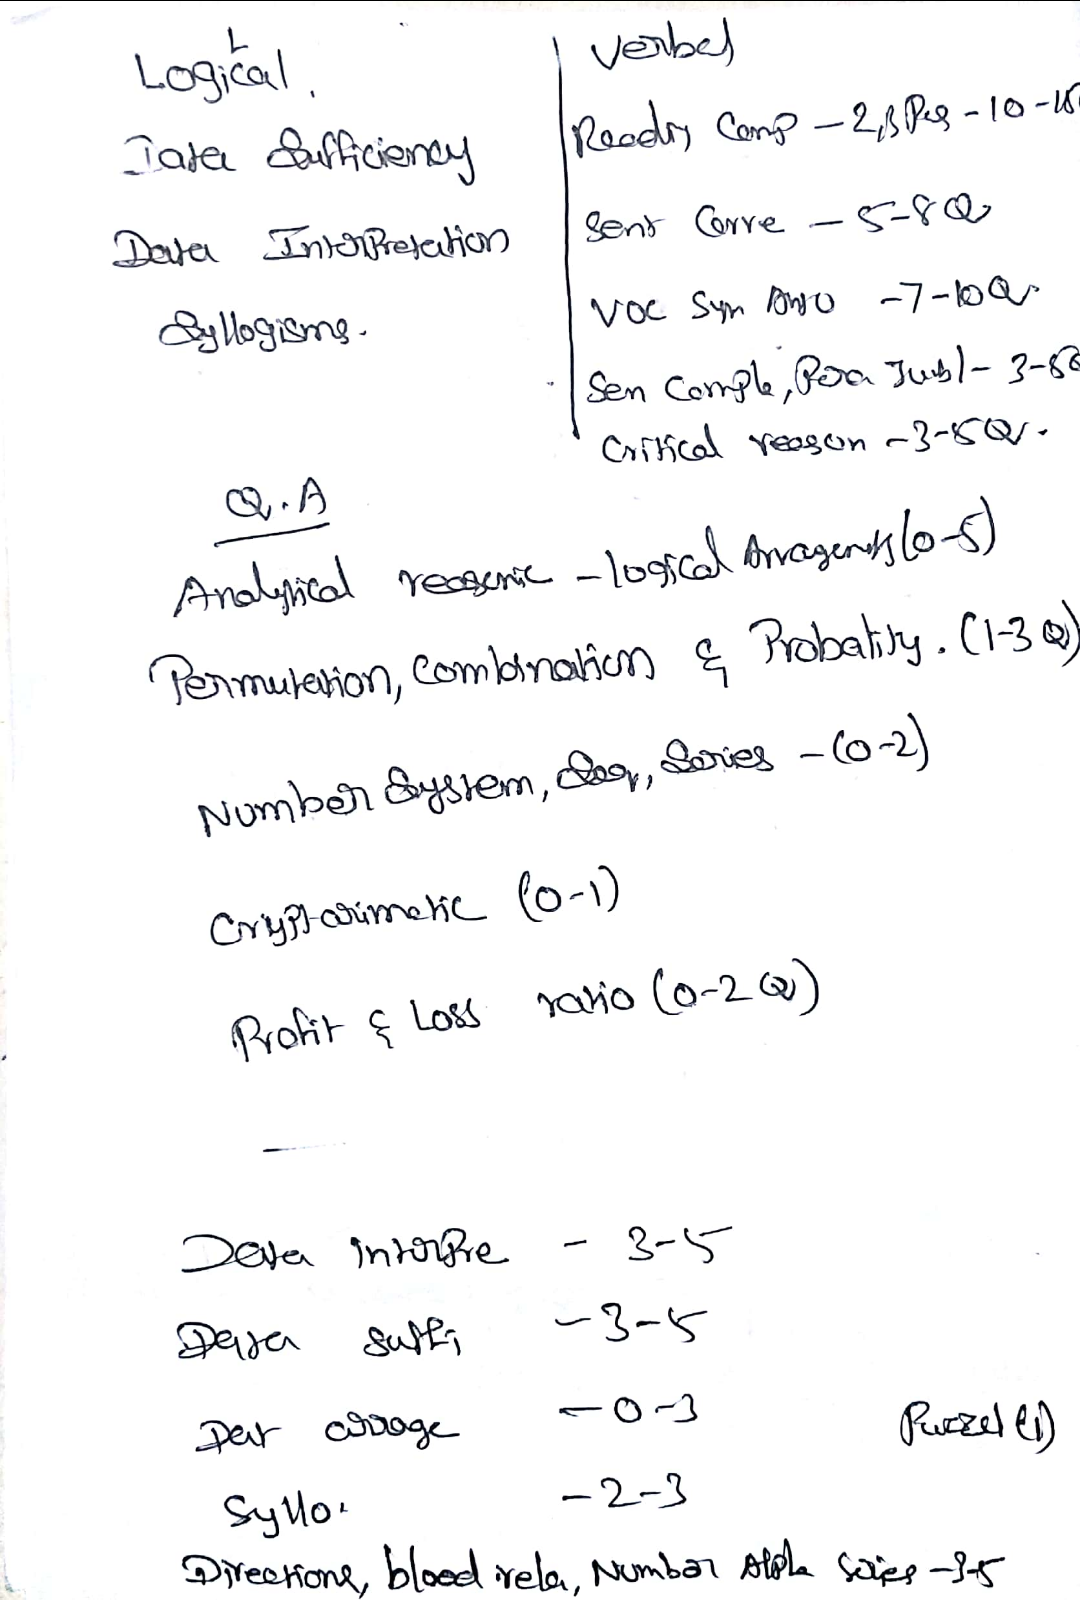 Logical
Data Sufficiency
Data Interpretation
Syllogisms.
Verbal
Readig Comp – 2,3 Psg – 10 -15
Sent Corre – 5-8 Q
VOC Syn Anto – 7-10 Q.
Sen Comple, Para Jubl – 3-5Q
Critical reason – 3-5 Q.
Q.A
Analytical reasonic – logical Arragents (0-5)
Permutation, Combination & Probatity. (1-3 Q)
Number System, Seq, Series – (0-2)
Crypt-arimetic (0-1)
Profit & Loss ratio (0-2 Q)
Data interpre – 3-5
Data suffi – 3-5
Dat arrage – 0-3 Puzzel (1)
Syllo. – 2-3
Directions, blood rela, Number Alpha Series – 3-5